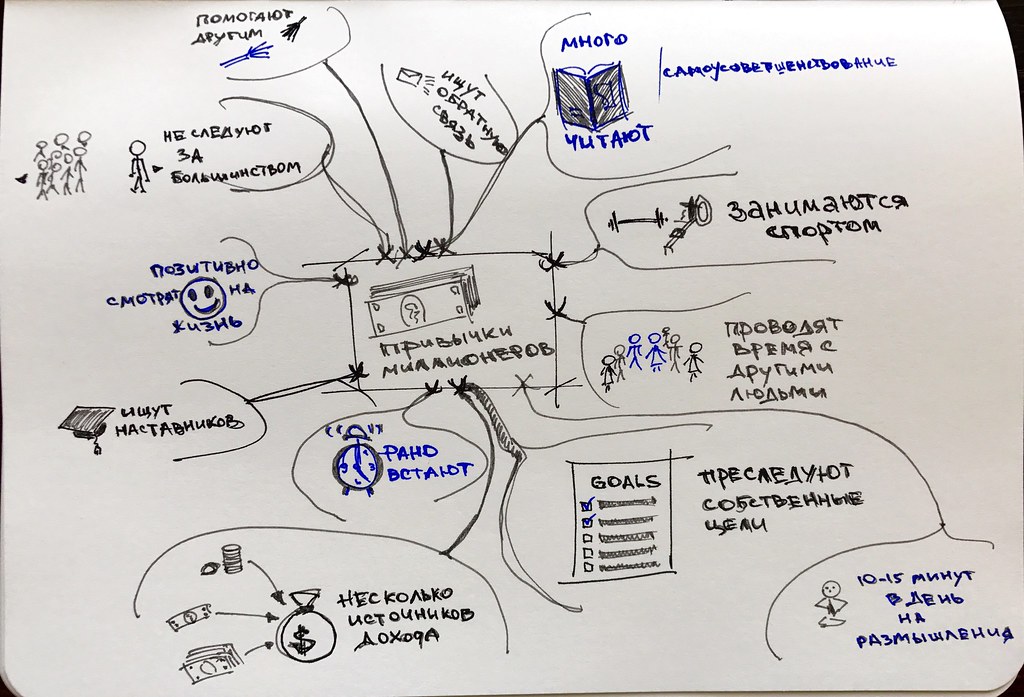 ПОМОГАЮТ
ДРУГИМ
ИЩУТ
ОБРАТНУЮ
СВЯЗЬ
МНОГО
ЧИТАЮТ
САМОУСОВЕРШЕНСТВОВАНИЕ
НЕ СЛЕДУЮТ
ЗА
БОЛЬШИНСТВОМ
ЗАНИМАЮТСЯ
СПОРТОМ
ПОЗИТИВНО
СМОТРЯТ НА
ЖИЗНЬ
ПРИВЫЧКИ
МИЛЛИОНЕРОВ
ПРОВОДЯТ
ВРЕМЯ С
ДРУГИМИ
ЛЮДЬМИ
ИЩУТ
НАСТАВНИКОВ
РАНО
ВСТАЮТ
GOALS
ПРЕСЛЕДУЮТ
СОБСТВЕННЫЕ
ЦЕЛИ
НЕСКОЛЬКО
ИСТОЧНИКОВ
ДОХОДА
$
10-15 МИНУТ
В ДЕНЬ
НА
РАЗМЫШЛЕНИЯ